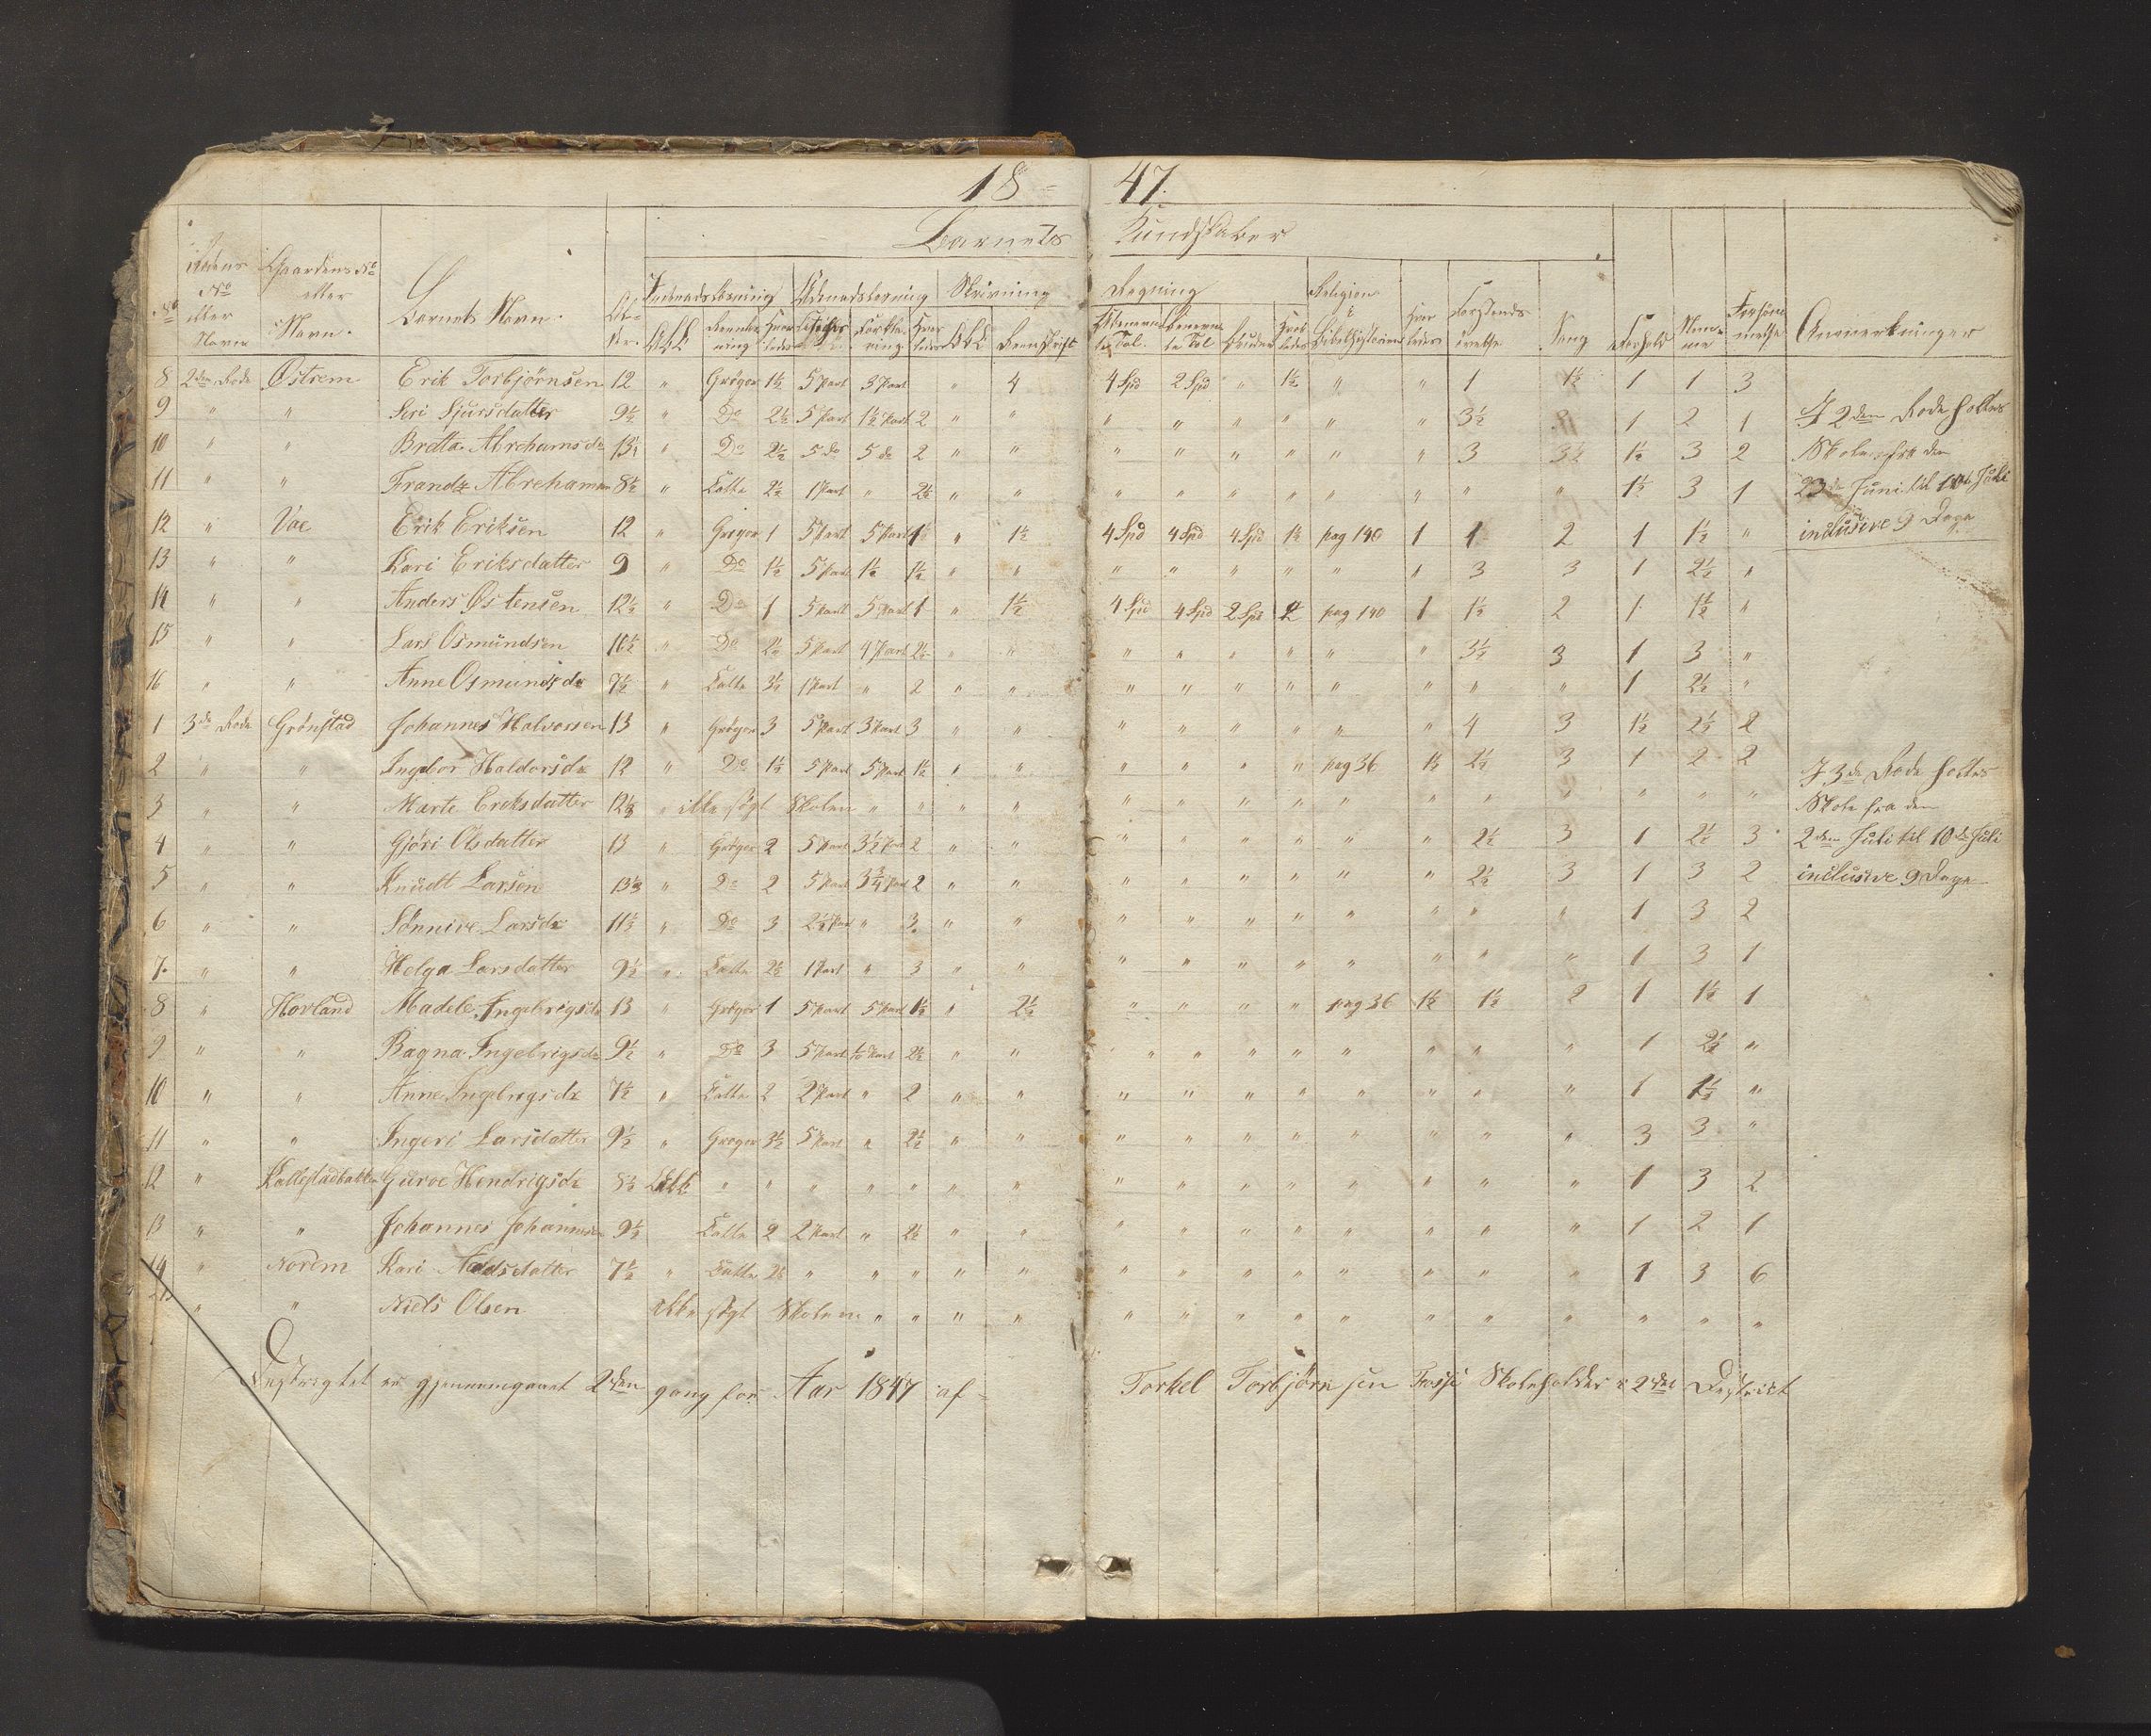 18 = 47.
Barnets Kundskaber
No Rodens No eller Navn Gaardens No eller Navn. Barnets Navn. Al- der. Indenadslæsning Udenadslæsning Skrivning Regning Religion Sang Forhold Anmærkninger
8 2den Rode Østrem Erik Torbjørnsen 12 " Grøger 1½ 5 Part 3 Part " 4 4 Spd 2 Spd " 1½ " " 1 1½ 1 1 3
9 " " Siri Sjursdatter 9½ " Do 2½ 5 Part 1½ Part 2 " " " " " " " " 3½ 1 2 1 I 2den Rode holtes
10 " " Bretta Abrehamsdr 13½ " Do 2½ 5 do 5 do 2 " " " " " " " " 3 3½ 1½ 3 2 Skole fra den
11 " " Frandz Abrehamsen 8½ " Latte 2½ 1 Part " 2½ " " " " " " " " " " 1½ 3 1 23de Juni til 1ste Juli
12 " Vae Erik Eriksen 12 " Grøger 1 5 Part 5 Part 1½ " 1½ 4 Spd 4 Spd 4 Spd 1½ pag 140 1 1 2 1 1½ " inclusive 9 Dage
13 " " Kari Eriksdatter 9 " Do 1½ 5 Part 1½ 1½ " " " " " " " " 3 3 1 2½ "
14 " " Anders Østensen 12½ " Do 1 5 Part 5 Part 1 " 1½ 4 Spd 4 Spd 2 Spd 2 pag 140 1 1½ 2 1 1½ "
15 " " Lars Osmundsen 10½ " Do 2½ 5 Part 4 Part 2½ " " " " " " " " 3½ 3 1 3 "
16 " " Anne Osmundsdr 7½ " Latte 3½ 1 Part " 2 " " " " " " " " " " 1 2½ "
1 3de Rode Grønstad Johannes Halvorsen 13 " Grøger 3 5 Part 3 Part 3 " " " " " " " " 4 3 1½ 2½ 2
2 " " Ingebor Haldorsdr 12 " Do 1½ 5 Part 5 Part 1½ " " " " " " pag 36 1½ 2½ 3 1 2 2 I 3de Rode holtes
3 " " Marte Eriksdatter 12½ " ikke søgt Skolen " " " " " " " " " " " " " " " Skole fra den
4 " " Gjøri Olsdatter 13 " Grøger 2 5 Part 3½ Part 2 " " " " " " " " 2½ 3 1 2½ 3 2den Juli til 10de Juli
5 " " Knudt Larsen 13½ " Do 2 5 Part 3¾ Part 2 " " " " " " " " 2½ 3 1 3 2 inclusive 9 Dage
6 " " Sønnive Larsdr 11½ " Do 3 2½ Part " 3 " " " " " " " " " " 1 3 2
7. " " Helga Larsdatter 9½ " Latte 2½ 1 Part " 3 " " " " " " " " " " 1 3 1
8 " Hovland Madele Ingebrigsdr 13 " Grøger 1 5 Part 5 Part 1½ " 2½ " " " " pag 36 1½ 1½ 2 1 1½ 1
9 " " Ragna Ingebrigsdr 9½ " Do 3 5 Part ½ Part 2½ " " " " " " " " " " 1 2½ "
10 " " Anne Ingebrigsdr 7½ " Latte 2 2 Part " 2 " " " " " " " " " " 1 1½ "
11 " " Ingeri Larsdatter 9½ " Grøger 3½ 5 Part " 2½ " " " " " " " " " " 3 3 "
12 " Kallestadbakken Gurve Hendrigsdr 8½ " " " " " " " " " " " " " " " 1 3 2
13 " " Johannes Johannesen 9½ Latte 2 2 Part " 2½ " " " " " " " " " " 1 2 1
14 " Norem Kari 7½ " Latte 2½ " " " " " " " " " " " " " 1 3 6
" " Niels Olsen ikke søgt Skolen " " " " " " " " " " " " " " "
Destrigtet er gjennemgaaet 2den gang for Aar 1847 af = Torkel Torbjørnsen Skoleholder i 2det Destrict